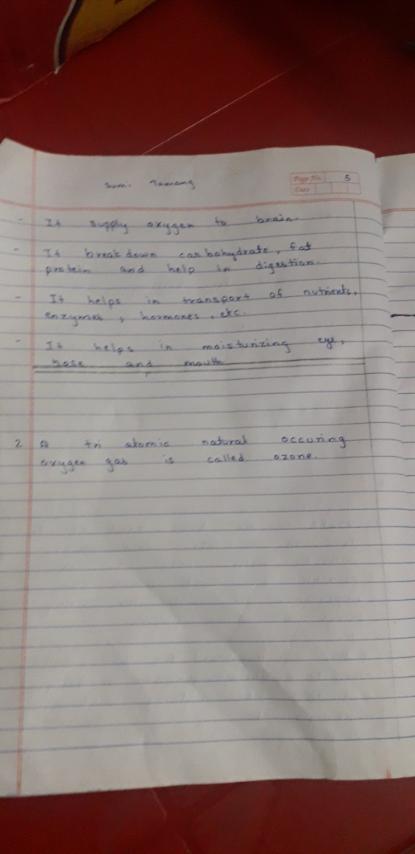 Sumi Tamang
Page No. 5
Date
- It supply oxygen to brain.
- It break down carbohydrate, fat
protein and help in digestion.
- It helps in transport of nutrients,
enzymes, hormones, etc.
- It helps in moisturizing eye,
nose and mouth
2. A tri atomic natural occuring
oxygen gas is called ozone.